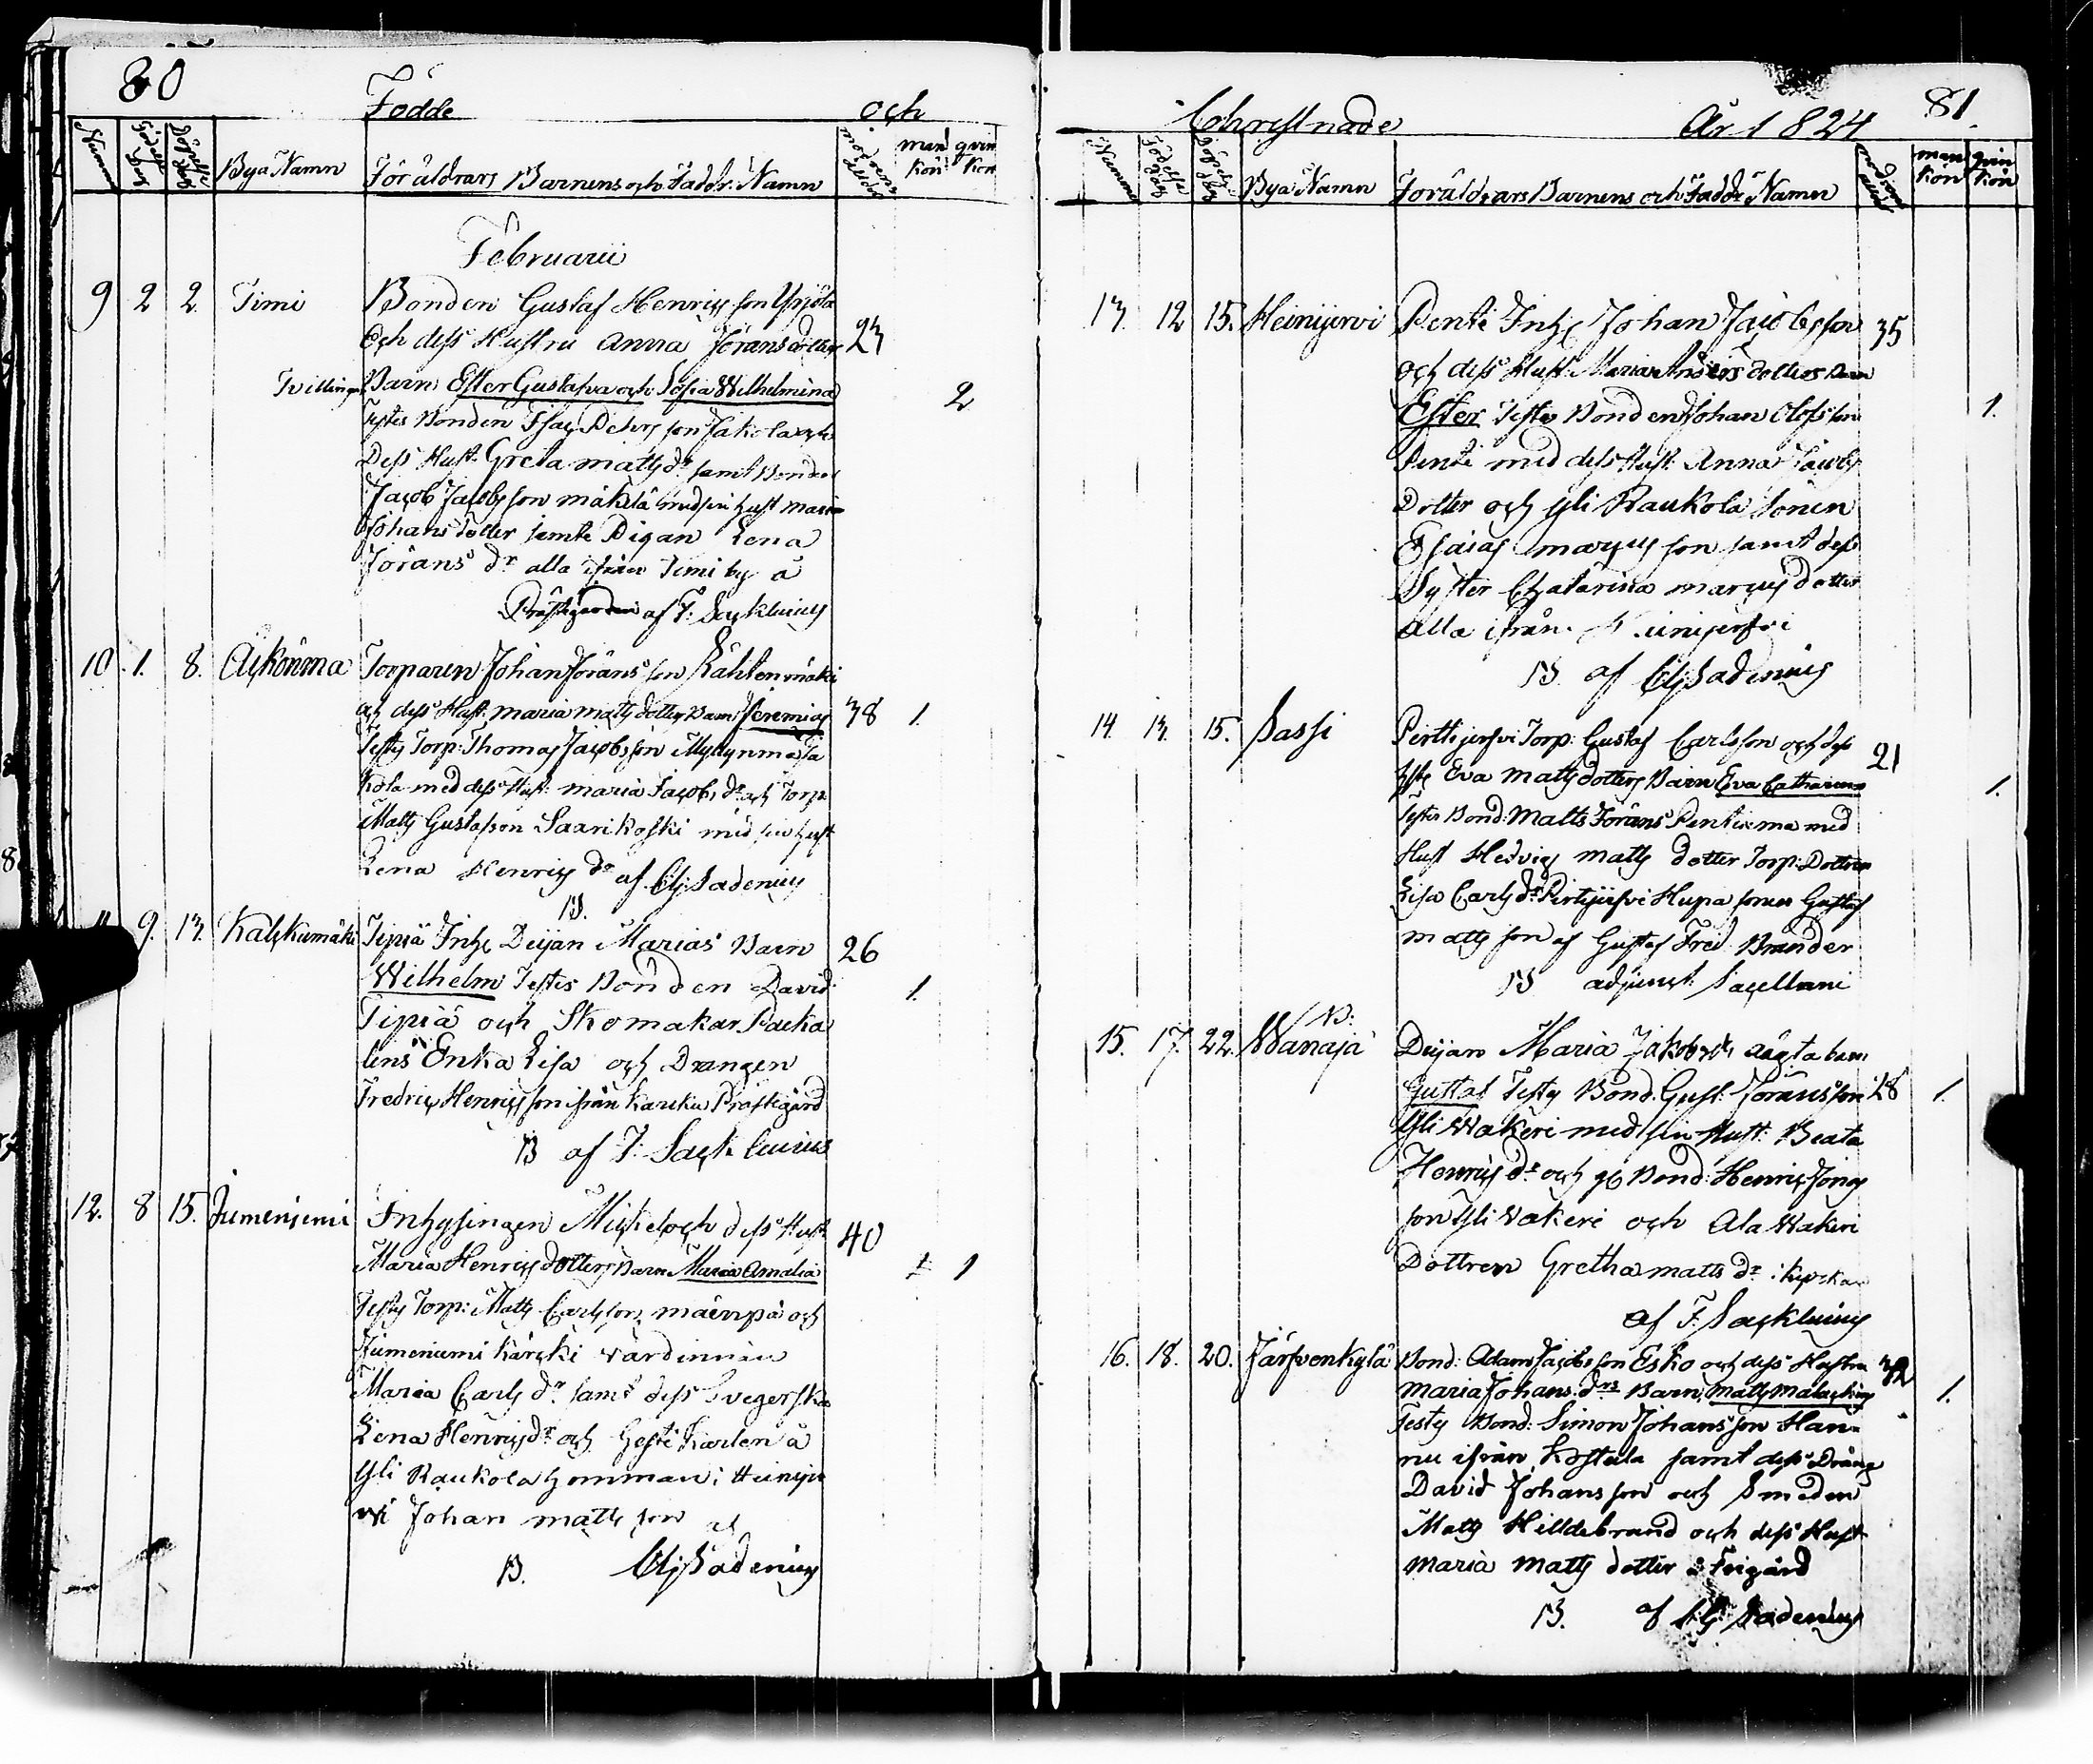 80
Födde och
Nummer Födelse Dag Döpelse Dag Bya Namn Föräldrars Barnens och Faddr. Namn modrens ålder man kön qvin kön
Februarii
9 2 2 Timi Bonden Gustaf Henrics son Yrjölä
Och dess Hustru Anna Jörans dotter 23
Tvillingar Barn Ester Gustafva och Sofia Wilhelmina 2
Testes Bonden Isac Pehrs son Jakola och
Dess Hust. Greta matts dr samt Bonden
Jacob Jacobsson mäkelä med sin hust maria
Johans dotter samte Pigan Lena
Jörans dr alla ifrån Timi by å
Prästgården af F: Sacklinius
10. 1. 8. Äckönma Torparen Johan Jörans son Lähtenmäki
och dess Hust. maria matts dotters Barn Jeremias 38 1.
Testes Torp: Thomas Jacobsson Myllynmaa Ja
kola med dess Hust. maria Jacobs dr och Torp.
Matts Gustafsson Saarikoski med sin hust
Lena Henrics dr af CGSadenius
B.
11 9. 13. Kalckumäki Tipiä Inhs Deijan Marias Barn 26
Wilhelm Testes Bonden David 1.
Tipiä och Skomakar Packa
lens Enka Lisa och Drangen
Fredric Henrics son ifrån Karcku Prästegård
B af F. Sacklinius
12. 8 15. Jumeniemi Inhysingen Mickel och dess Hust. 40
Maria Henrics dotters Barn Maria Amalia 1 1
Testes Torp: Matts Carlsson mäenpä och
Jumeniemi Kärcki värdinnan
Maria Carls dr samt dess Svegerska
Lena Henrics dr och Gesti Karlen å
Yli Raukola hemman i Heinijer
vi Johan matts son af
B. CGSadenius
Chrestnade År 1824 81.
Nummer Födelse Dag Döpelse Dag Bya Namn Föräldrars Barnens och Faddr Namn modrens ålder man kön qvin kön
13. 12 15. Heinijervi Penti Inhs Johan Jacobsson 35
och dess Hust: Maria Anders dotters Barn
Ester Testes Bonden Johan Olofsson 1.
Penti med dess Hust. Anna Jacobs
Dotter och Yli Raukola Sonen
Esaias marcus son samt dess
Syster Chatarina marcus dotter
alla ifrån Heinijerfvi
B af CGSadenius
14. 13. 15. Sassi Perttijerfvi Torp: Gustaf Carlsson och dess 21
hste Eva matts dotters Barn Eva Catharina 1.
Testes Bond. Matts Jörans Pentinma med
Hust Hedvig matts dotter Torp: Dottren
Lisa Carls dr Pirtijerfvi Hupa sonen Gustaf
matts son af Gustaf Fred Brander
B adjunct. Sacellani
B:
15. 17. 22. Wanajä Deijan Maria Jakobs dr oägta barn
Gustaf Testes Bond. Gust. Jörans son 28 1.
Yli Wakeri med sin Hust. Beata
Henrics dr och gl Bond: Henric Jöns
son Yli Wakeri och Ala Wakeri
Dottren Gretha matts dr i kyrckan
af F. Sacklinius
16. 18. 20. Järfvenkylä Bond: Adam Jacobsson Esko och dess Hustru 32
Maria Johans drs Barn, matts malachias 1.
Testes Bond: Simon Johans son Han-
nu ifrån Kostula samt dess Dräng
David Johans son och Smeden
Matts Hilldebrand och dess Hust
maria matts dotter å Frigård
B. af CG Sadenius